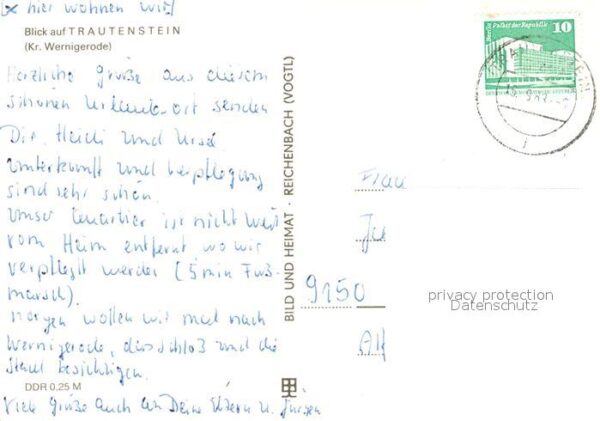 x hier wohnen wir!
Blick auf TRAUTENSTEIN
(Kr. Wernigerode)
Herzliche Grüße aus diesem
schönen Urlaubsort senden
Dir, Heidi und
Unterkunft und Verpflegung
sind sehr schön.
Unser Quartier ist nicht weit
vom Heim entfernt wo wir
verpflegt werden (5 min Fuß-
marsch).
Morgen wollen wir mal nach
Wernigerode, das Schloß und die
Stadt besichtigen.
DDR 0,25 M
Viele Grüße auch an Deine Eltern u. Jürgen
BILD UND HEIMAT · REICHENBACH (VOGTL)
Berlin Palast der Republik
10
Frau
9150
privacy protection
Datenschutz